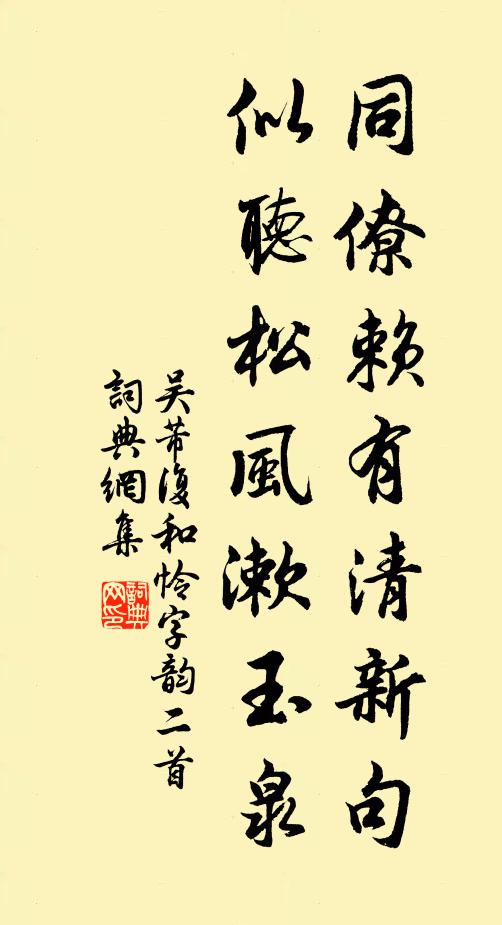 同僚賴有清新句
似聽松風漱玉泉
吴芾復和怜字韵二首
詞典網集
詞典网印